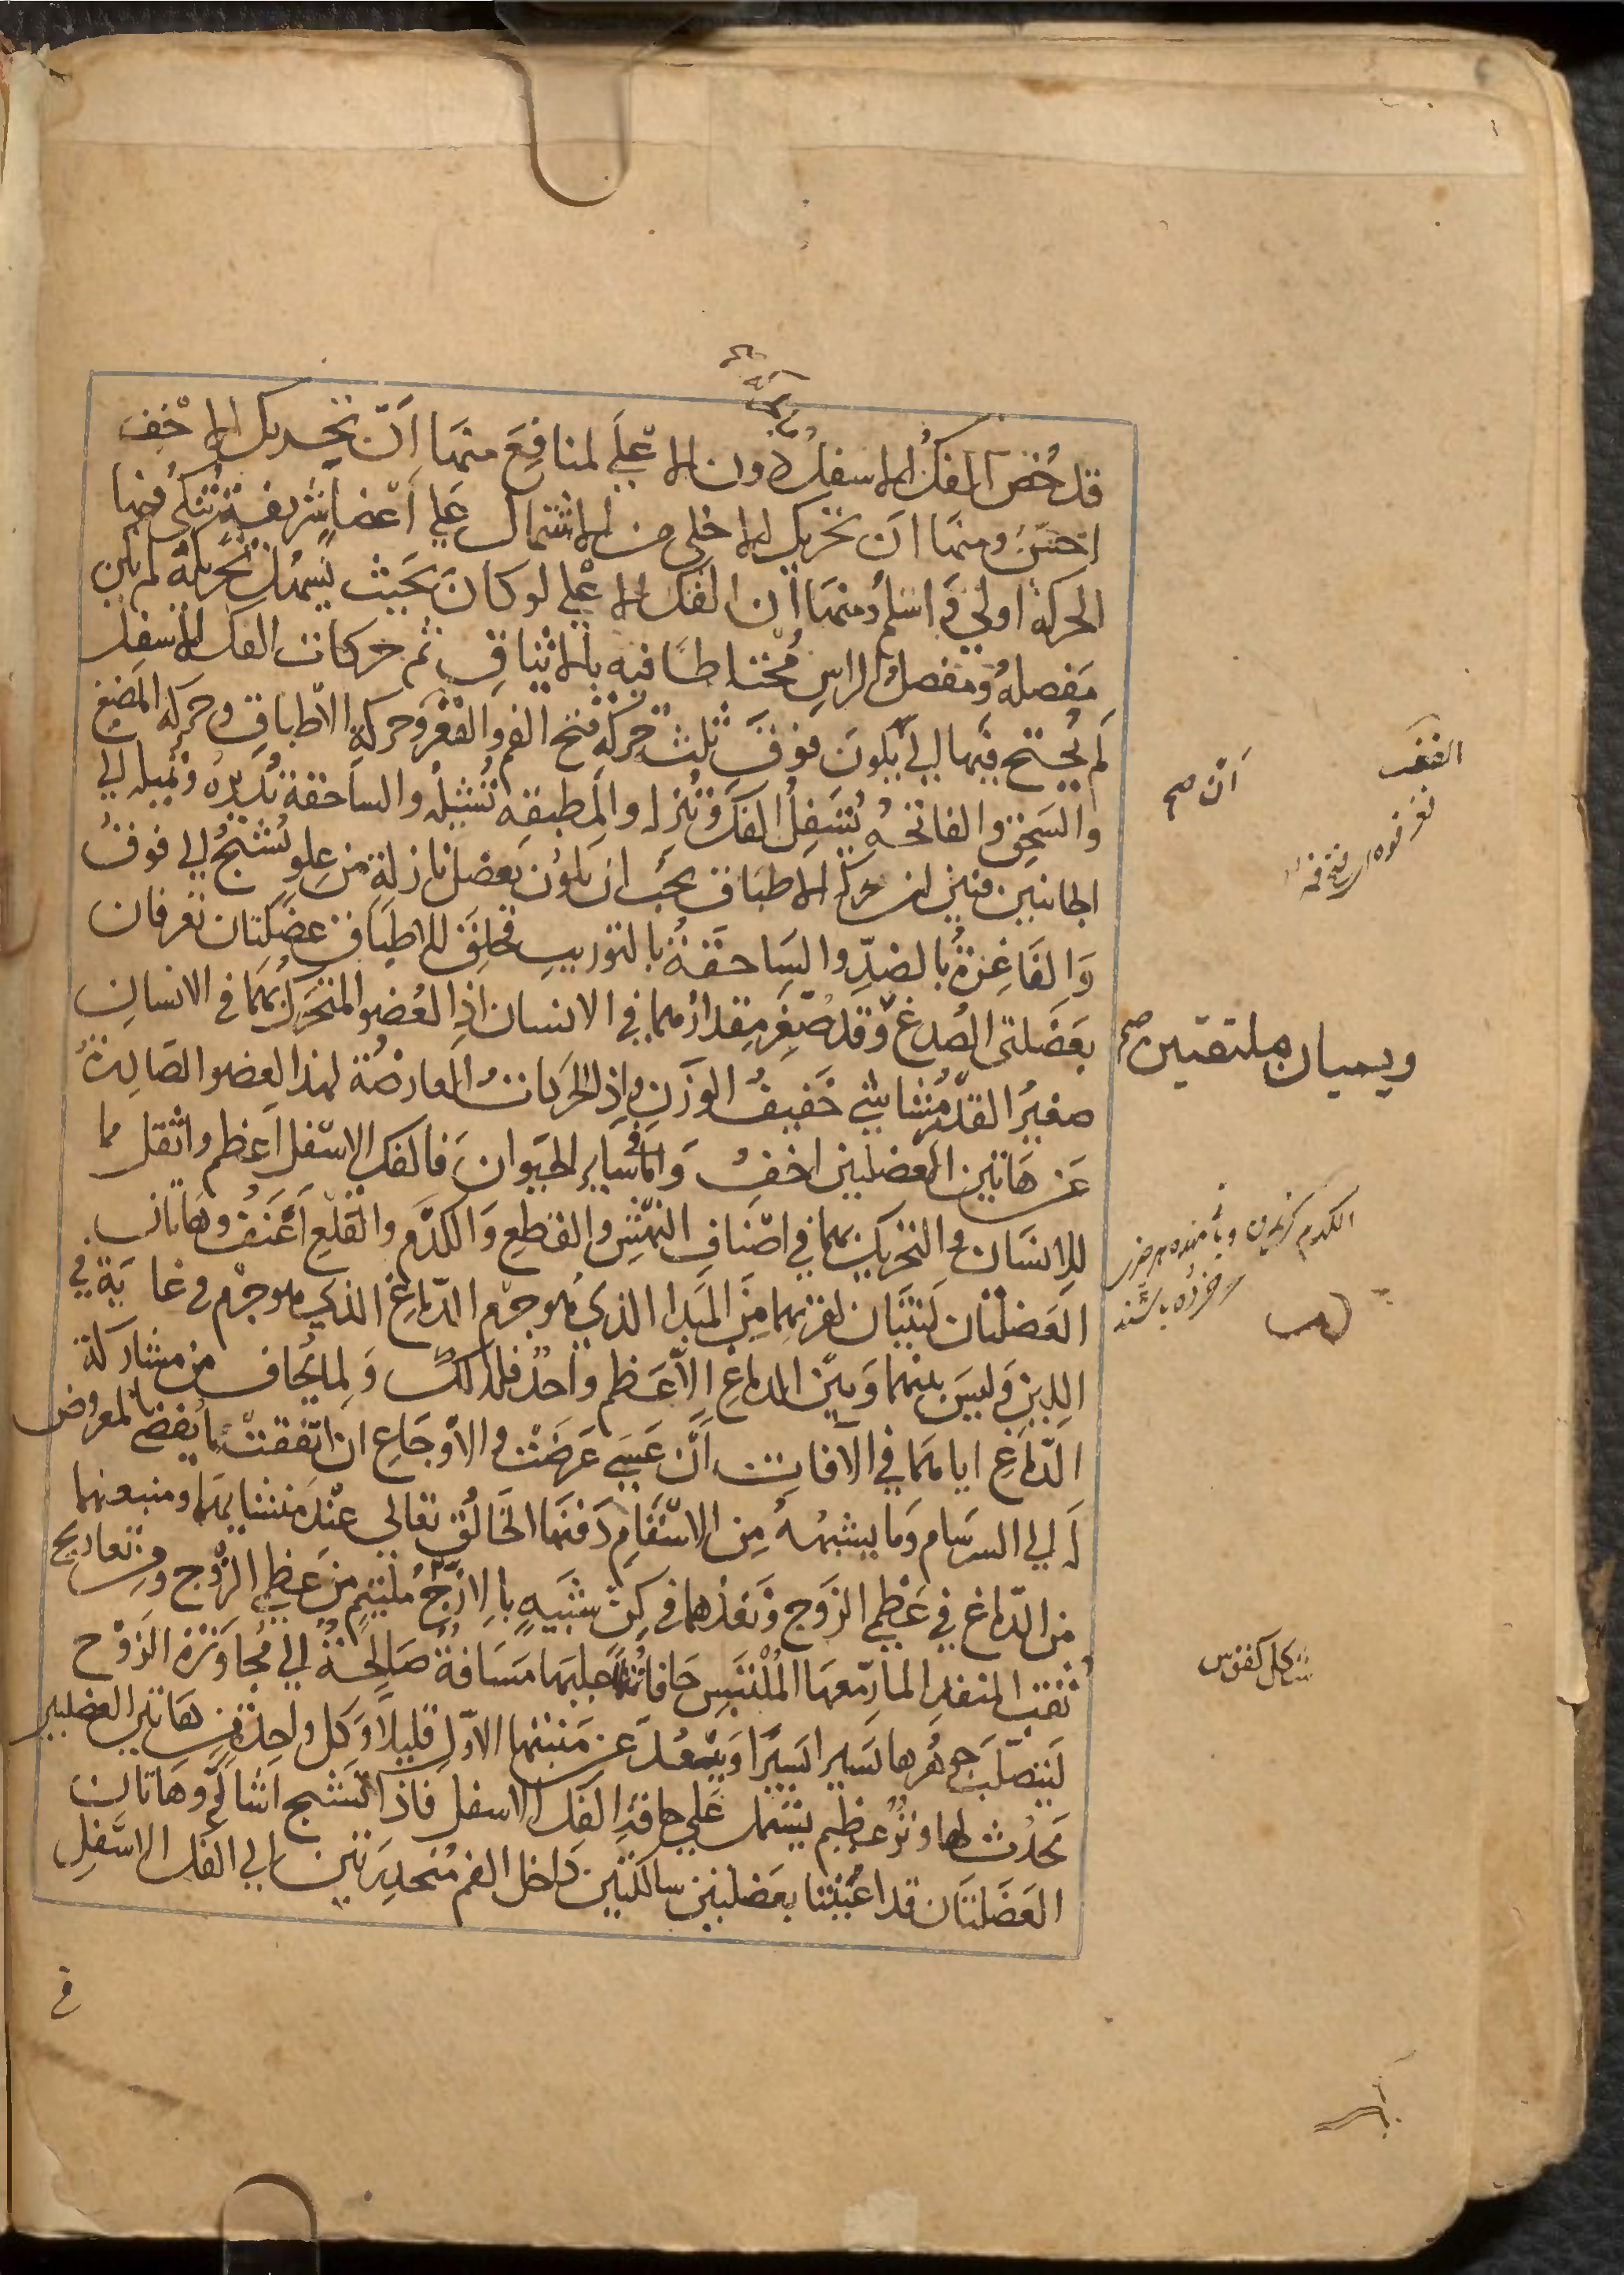 قد خُصّ الفكُ الاسفلُ دون الاعلي لمنافع منها انّ تحريك الاخف
احسن ومنها ان تحريك الاخلي من الاشتمال علي اعضاء شريفة تنكي فيها
الحركة اولي و اسلم ومنها ان الفك الاعلي لو كان بحيث يسهل تحريكه لم يكن
مفصله ومفصل الراس محتاطا فيه بالايثاق ثم حركات الفك الاسفل
لم يحتج فيها الي ان يكون فوق ثلث حركة فتح الفم والفغر وحركة الاطباق وحركة المضغ
والسحق والفاتحة تسفل الفك وتنزله والمطبقة تشيله والساحقة تديره وتميله الي
الجانبين فبين ان حركة الاطباق يجب ان يكون بعضل نازلة من علو تشنج الي فوق
والفاغرة بالضد والساحقة بالتوريب فخلق للاطباق عضلتان تعرفان
بعضلتي الصدغ وقد صغر مقدارهما في الانسان اذ العضو المتحرك بهما في الانسان
صغير القدر مشاشي خفيف الوزن واذ الحركات العارضة لهذا العضو الصادرة
عن هاتين العضلتين اخف واما في ساير الحيوان فالفك الاسفل اعظم واثقل مما
للانسان والتحريك بهما في اصناف النهش والقطع والكدم والقلع اعنف وهاتان
العضلتان لينتان لقربهما من المبدا الذي هو جرم الدماغ الذي هو جرم في غاية في
اللين وليس بينهما وبين الدماغ الا عظم واحد فلذلك ولما يخاف من مشاركة
الدماغ اياهما في الآفات ان عسي عرضت والاوجاع ان اتفقت ما يفضي بالمعروض
له الي السرسام وما يشبهه من الاسقام دفنهما الخالق تعالي عند منشايهما ومنبعهما
من الدماغ في عظمي الزوج ونفذهما في كن شبيه بالازج ملتئم من عظمي الزوج ومن تعاريج
ثقب المنفذ المار معها الملتبس حافاته عليهما مسافة صالحة الي مجاوزة الزوج
ليتصلب جوهرها يسيرا يسيرا ويبعد عن منبتها الاول قليلا وكل واحد من هاتين العضلتين
يحدث لها وتر عظيم يشتمل علي حافة الفك الاسفل فاذا تشنج اشاله وهاتان
العضلتان قد اعينتا بعضلتين سالكتين داخل الفم منحدرتين الي الفك الاسفل
ان صح
الفغر
ويسميان ملتقتين صح
الكدم
في